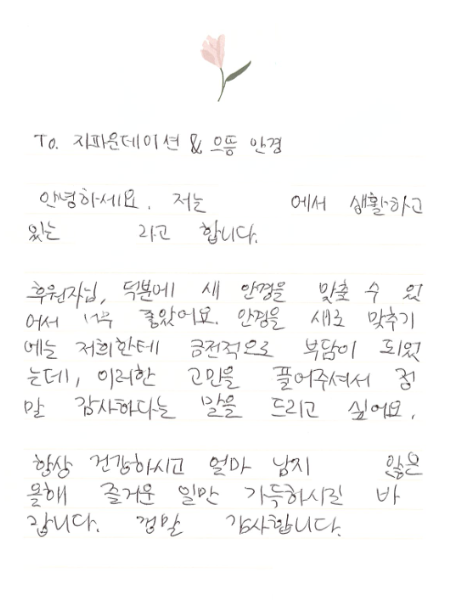 To. 지파운데이션 & 으뜸 안경
안녕하세요. 저는 에서 생활하고
있는 라고 합니다.
후원자님, 덕분에 새 안경을 맞출 수 있
어서 너무 좋았어요. 안경을 새로 맞추기
에는 저희한테 금전적으로 부담이 되었
는데, 이러한 고민을 풀어주셔서 정
말 감사하다는 말을 드리고 싶어요.
항상 건강하시고 얼마 남지 않은
올해 즐거운 일만 가득하시길 바
랍니다. 정말 감사합니다.